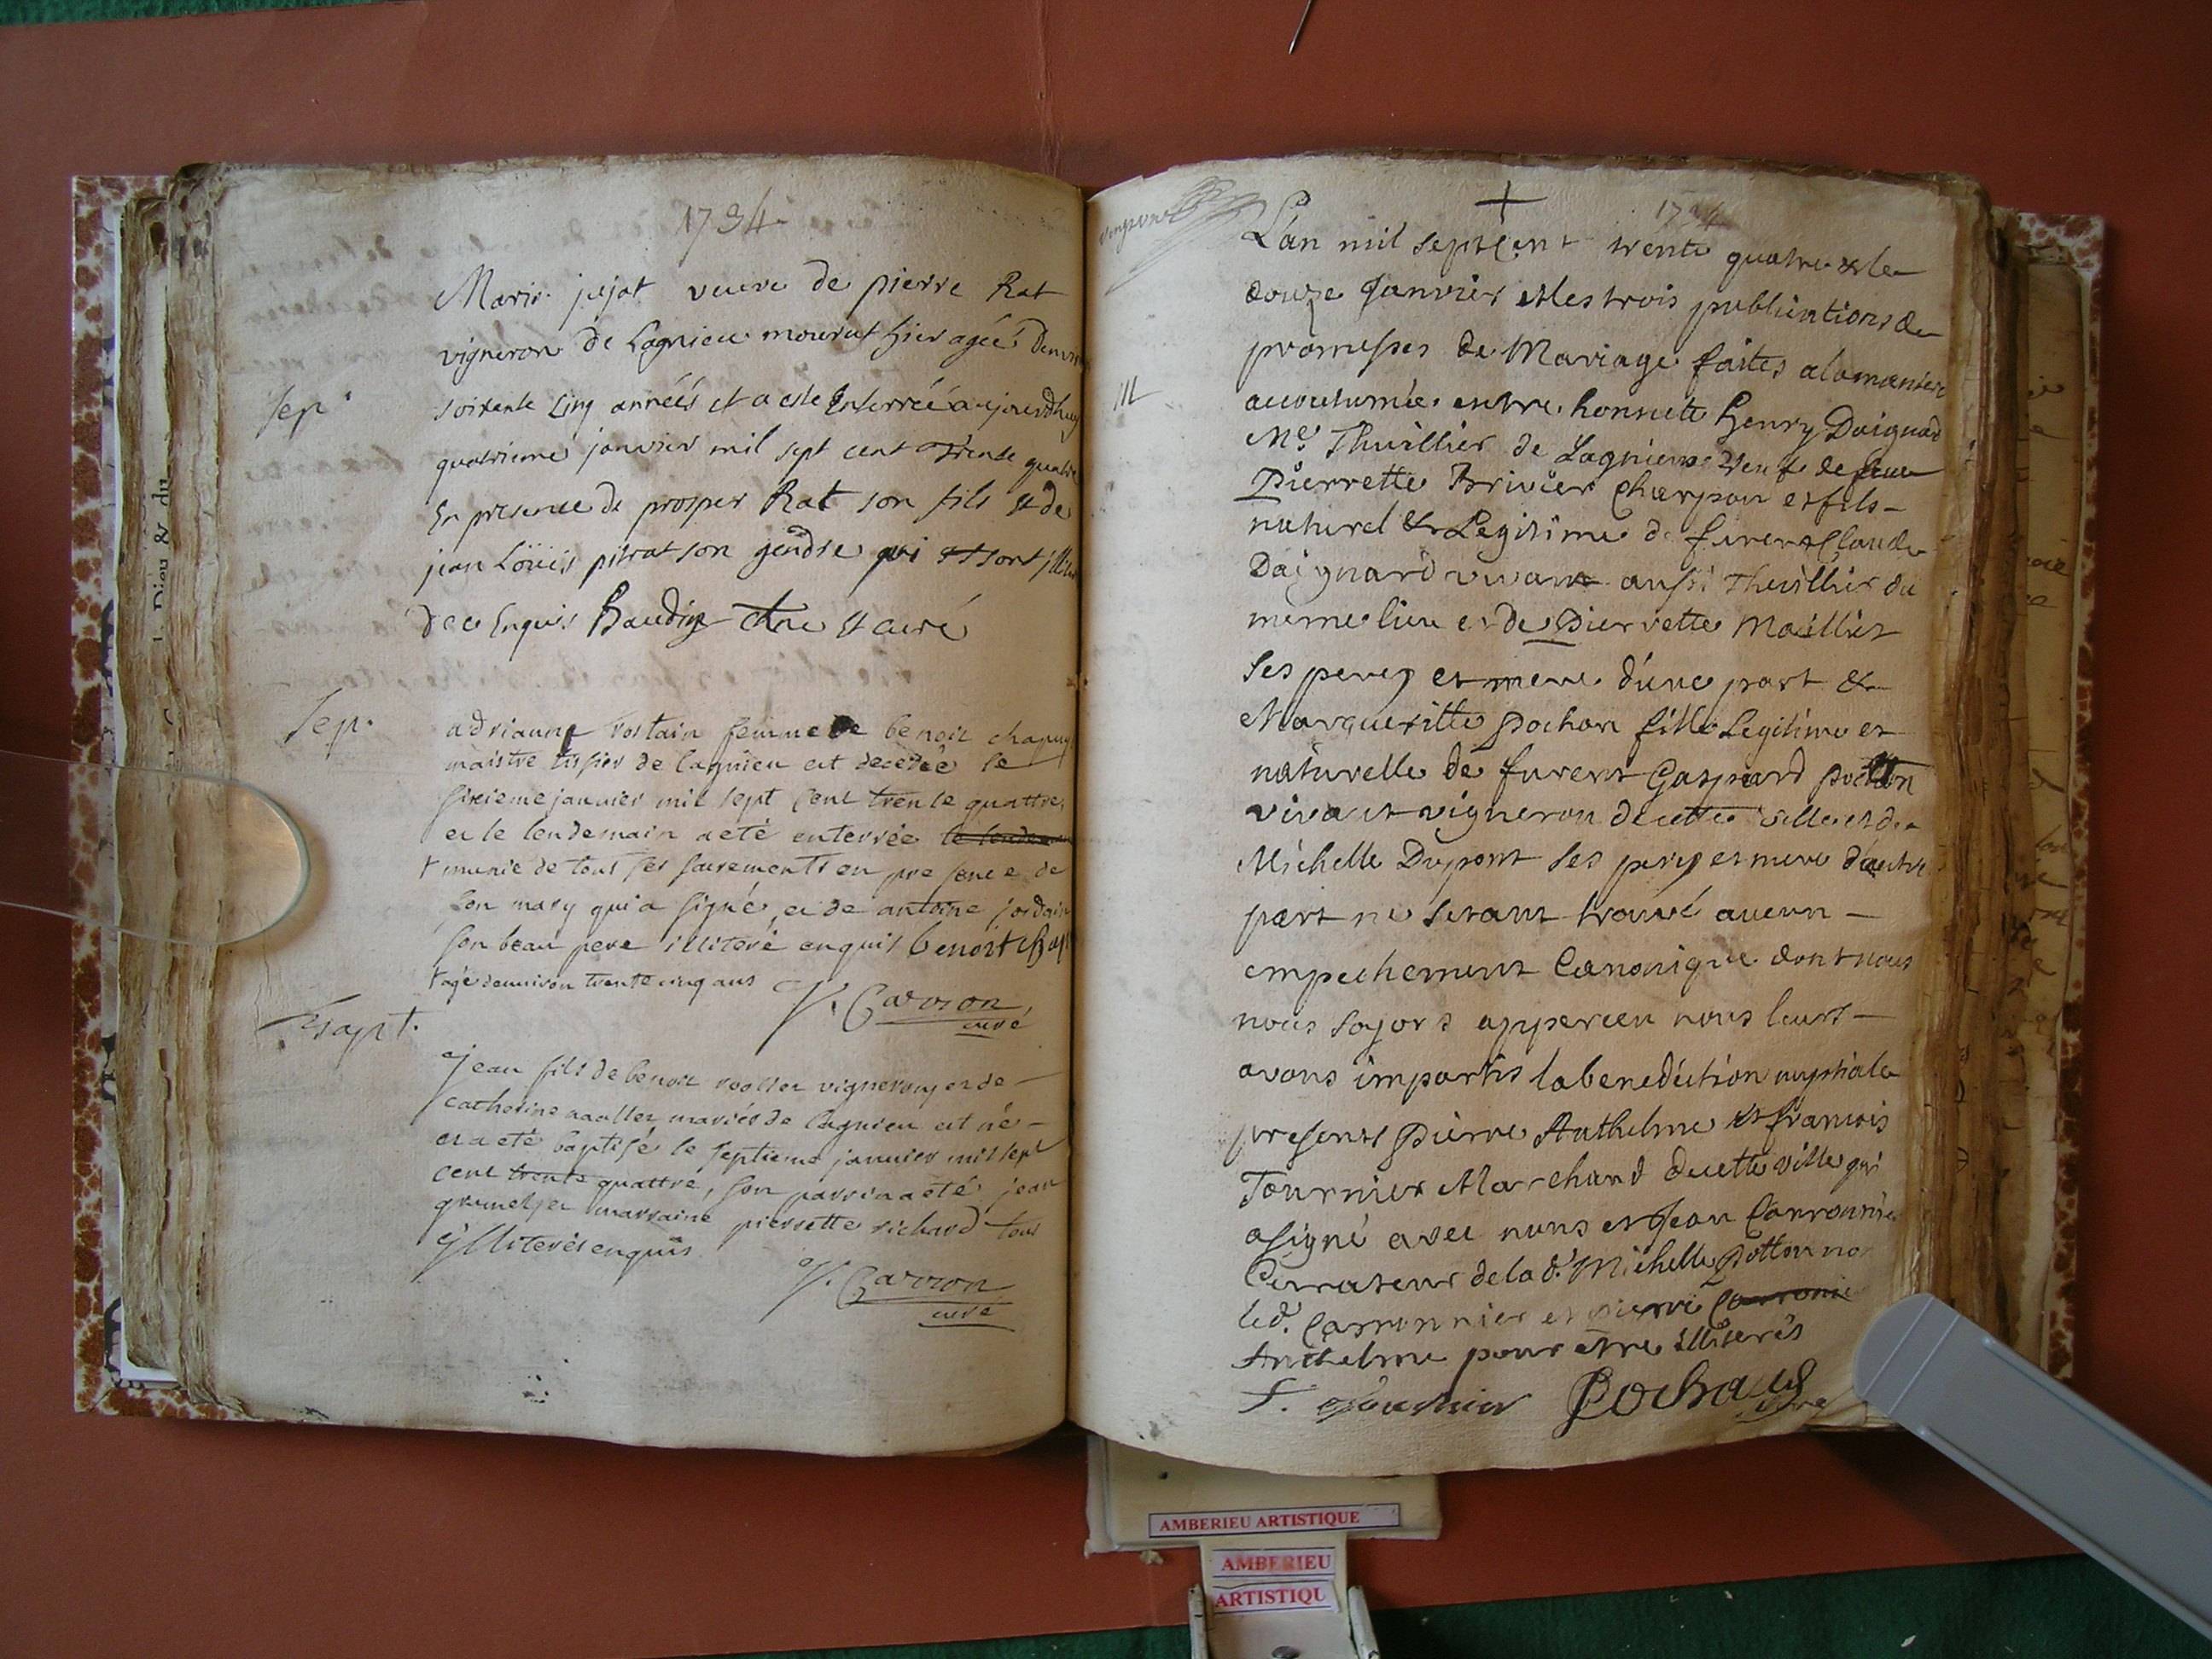 1734
Marie jujat veuve de pierre Rat
vigneron de Lagnieu mourut hier agée
Sep.
soixente Cinq années et a este Enterrée aujourdhuy
quatrieme janvier mil sept cent Trente quatre
En presence de prosper Rat son fils et de
jean Loüis pitrat son gendre qui sont
Enquis Baudin et curé
Sep.
adrianne Vostain femme de benoit chapuy
maistre tissier de lagnieu est decedée le
sixieme janvier mil sept cent trente quattre,
et le lendemain a eté enterrée le lendemain
+ munie de tous ses sacrements en presence de
son mary qui a signé, et de antoine jordain
son beau pere illiteré enquis benoit chap
+ agé denviron trente cinq ans
J. Carron
curé
Bapt.
jean fils de benoit vigneron, et de
catherine mariés de lagnieu est né
et a eté baptisé le septieme janvier mil sept
cent trente quattre, son parrin a eté jean
et marraine pierrette richard tous
illiterés enquis
J. Carron
curé
vingt un
1734
L'an mil sept Cent trente quatre & le
douze Janvier et les trois publications de
promesses de Mariage faites a la maniere
III
accoutumée entre honnette Henry Daignard
Me. Thuillier de Lagnieu veuf de feue
Pierrette Brivier Charpon et fils
naturel & Legitime de furent Claude
Daignard vivant aussi Thuillier du
meme lieu et de Pierrette Maillier
ses perez et mere d'une part &
Margueritte Pochon fille Legitime et
naturelle de furent Gaspard Pochon
vivant vigneron de cette ville et de
Michelle Dupont ses perez et mere d'autre
part ne setant trouvé aucun
empechement Canonique dont nous
nous soyons apperceu nous leurs
avons impartis la benediction nuptiale
presents Pierre Anthelme et francois
Tournier Marchand de cette ville qui
a signé avec nous et Jean Carronnier
Curateur de la d. Michelle Potton non
led. Carronnier et pierre Carronier
Anthelme pour etre illiterés
f. Pochard
AMBERIEU ARTISTIQUE
AMBERIEU
ARTISTIQU